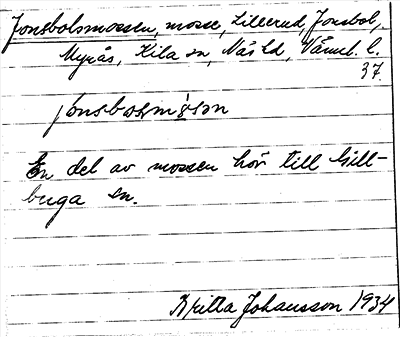 Jonsbolsmossen, mosse, Lillerud, Jonsbol,
Myrås, Kila sn, Näs hd, Värml. l.
37.
jonsbolsmosən
En del av mossen hör till Gill-
buga sn.
Britta Johansson 1934